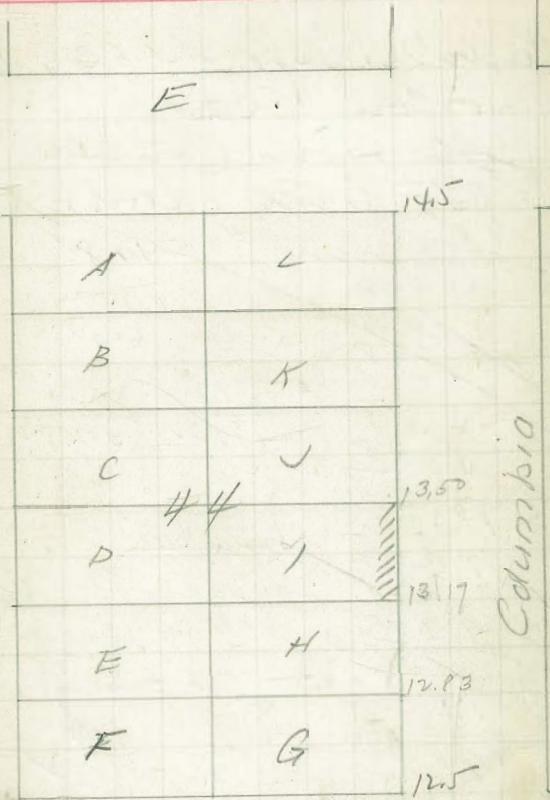 E
14.5
A L
B K
C J
13.50
44
D I
13.17
E H
12.83
F G
12.5
Columbia